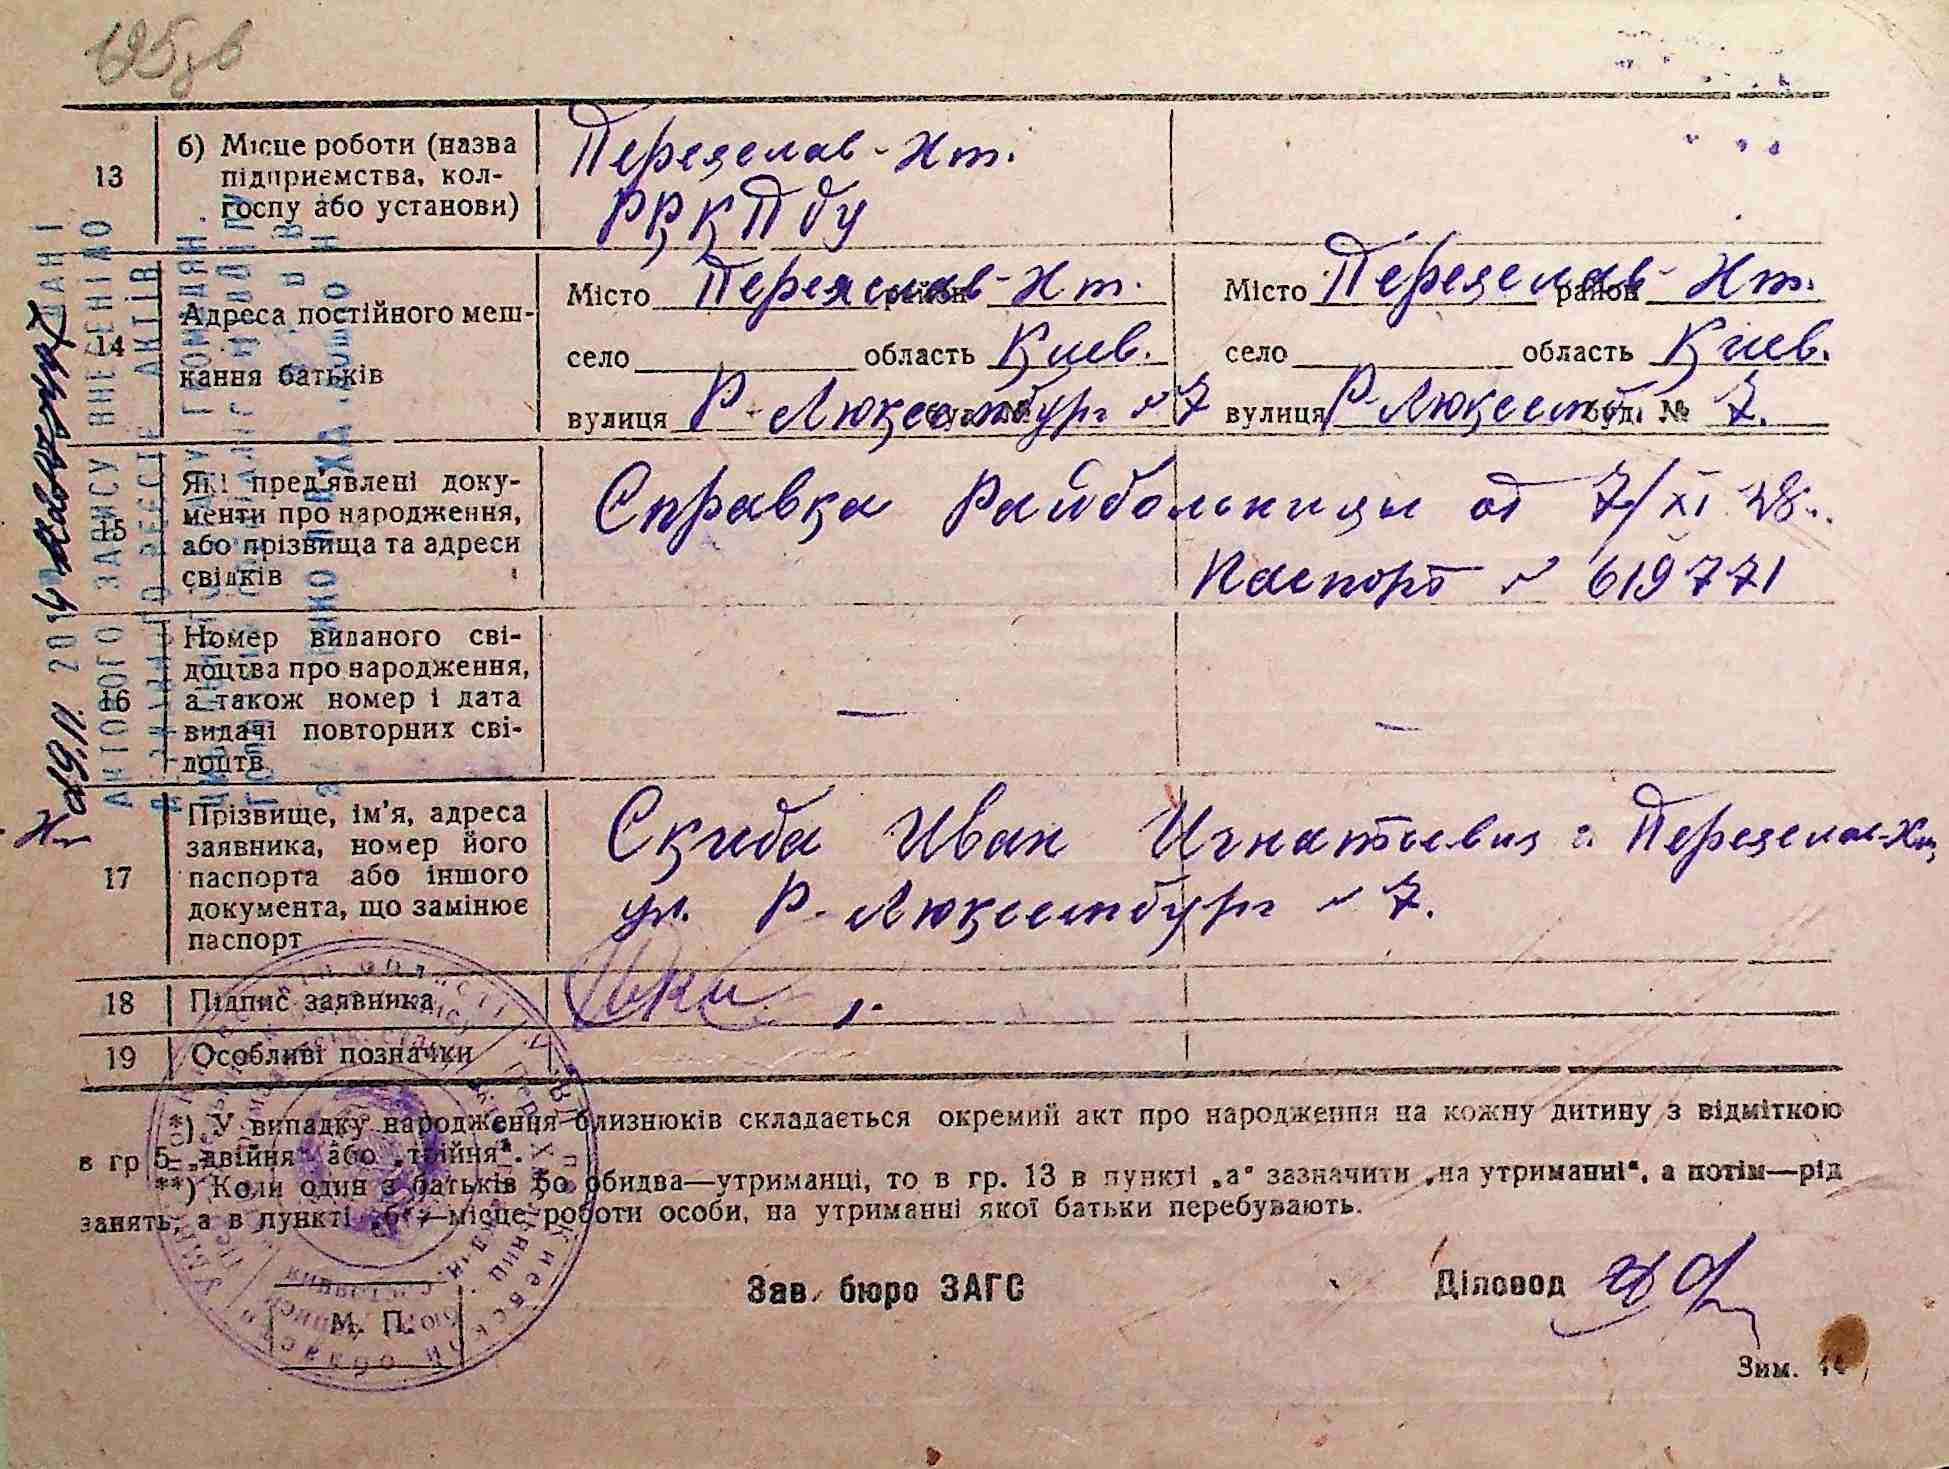 625зв
13 б) Місце роботи (назва підприємства, колгоспу або установи)
Переяслав-Хм.
РК КПбУ
14 Адреса постійного меш-
кання батьків
Місто Переяслав-Хм. район
село область Киев.
вулиця Р-Люксембург №7
Місто Переяслав-Хм. район
село область Киев.
вулиця Р-Люксемб. буд. № 7.
15 Які пред'явлені доку-
менти про народження,
або прізвища та адреси
свідків
Справка Райбольницы от 7/XI
Паспорт № 619771
16 Номер виданого сві-
доцтва про народження,
а також номер і дата
видачі повторних сві-
доцтв
— —
17 Прізвище, ім'я, адреса
заявника, номер його
паспорта або іншого
документа, що замінює
паспорт
Скиба Иван Игнатьевич г. Переяслав-Хм,
ул. Р-Люксембург №7.
18 Підпис заявника
19 Особливі позначки
*) У випадку народження близнюків складається окремий акт про народження на кожну дитину з відміткою
в гр 5 „двійня" або „трійня".
**) Коли один з батьків або обидва—утриманці, то в гр. 13 в пункті „а" зазначити „на утриманні", а потім—рід
занять, а в пункті „б"—місце роботи особи, на утриманні якої батьки перебувають.
Зав. бюро ЗАГС
Діловод
М. П.
Зим. 14